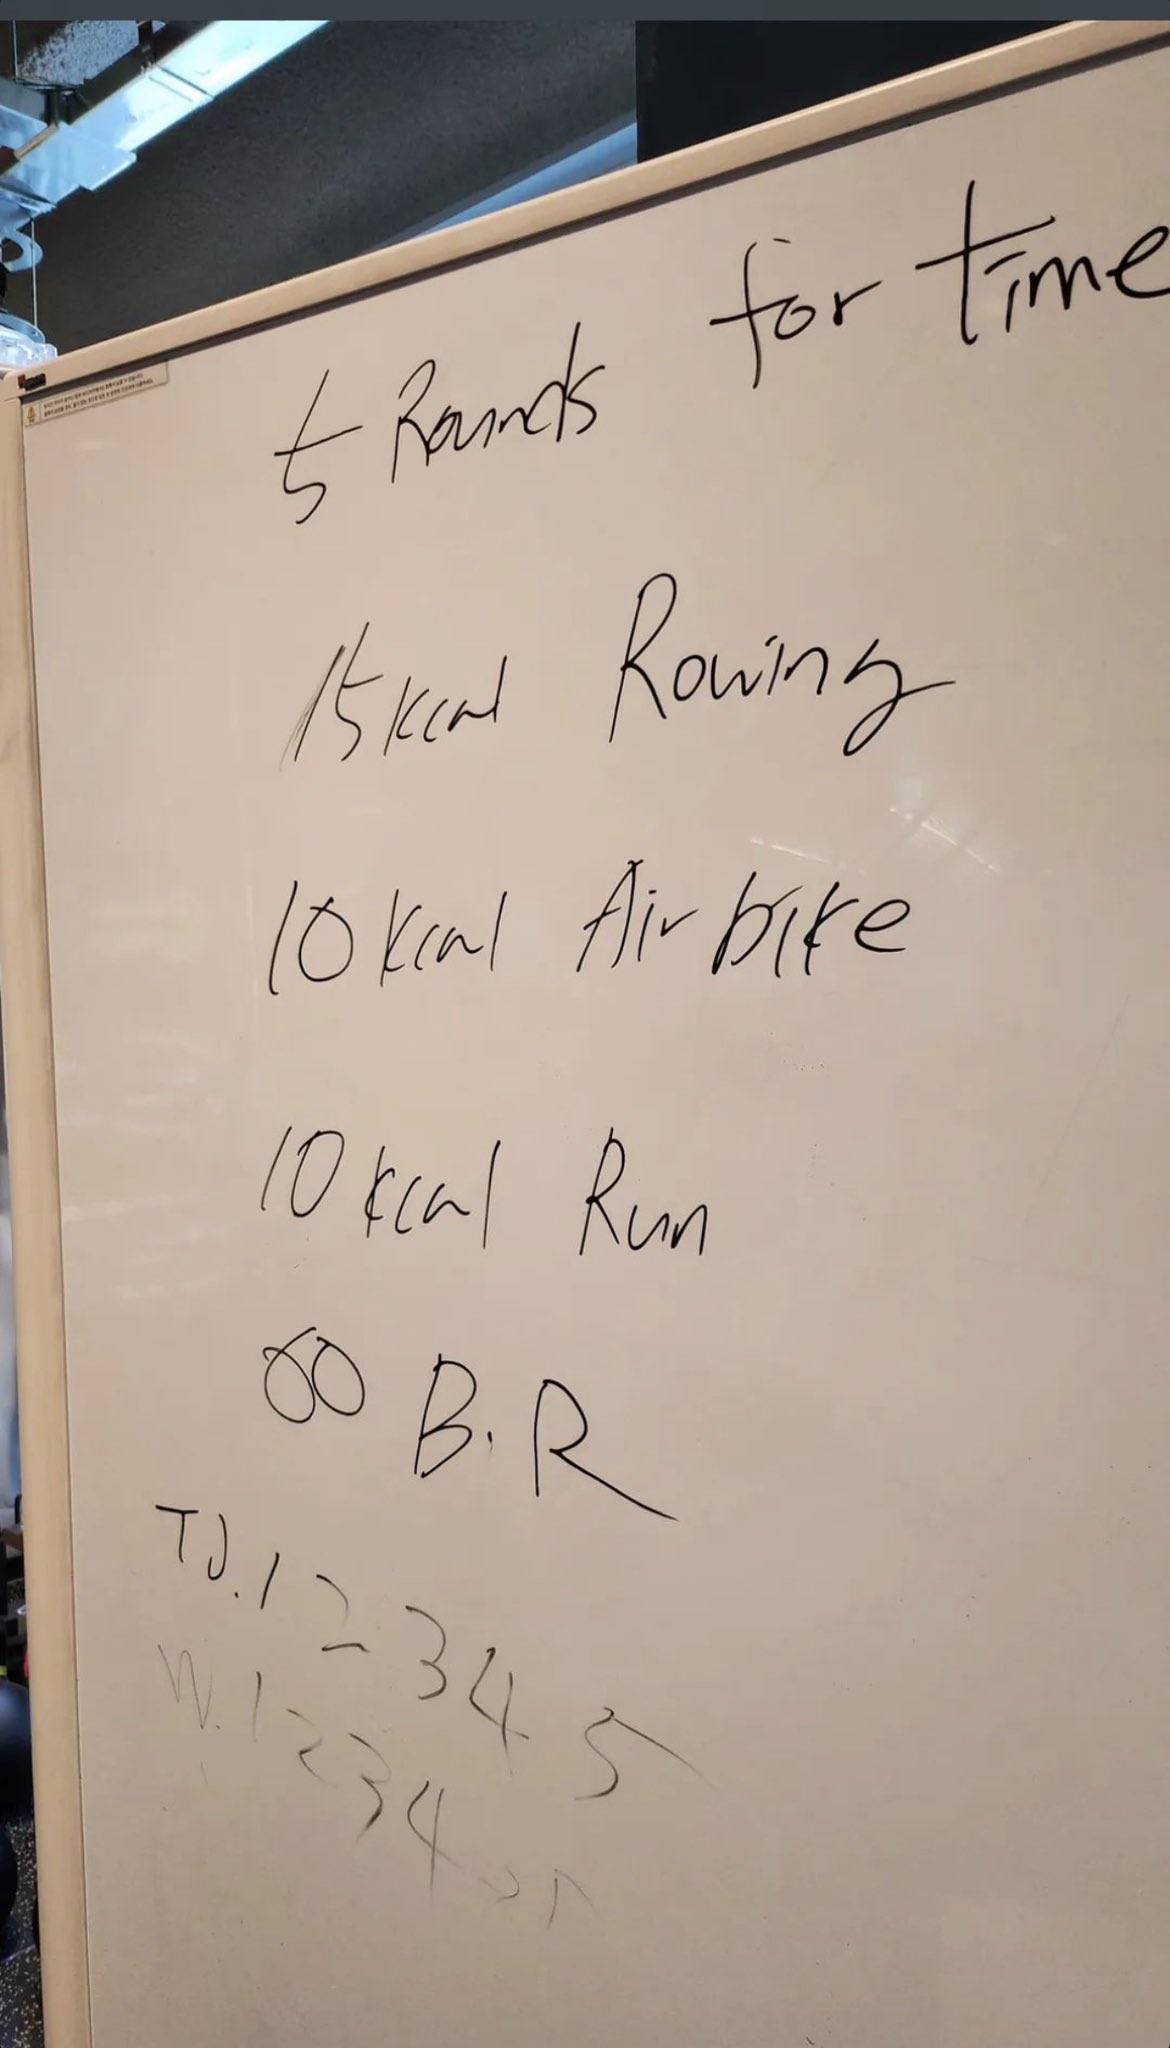 5 Rounds for time
15 kcal Rowing
10 kcal Air bike
10 kcal Run
B.R
TJ. 1 2 3 4 5
W. 1 2 3 4